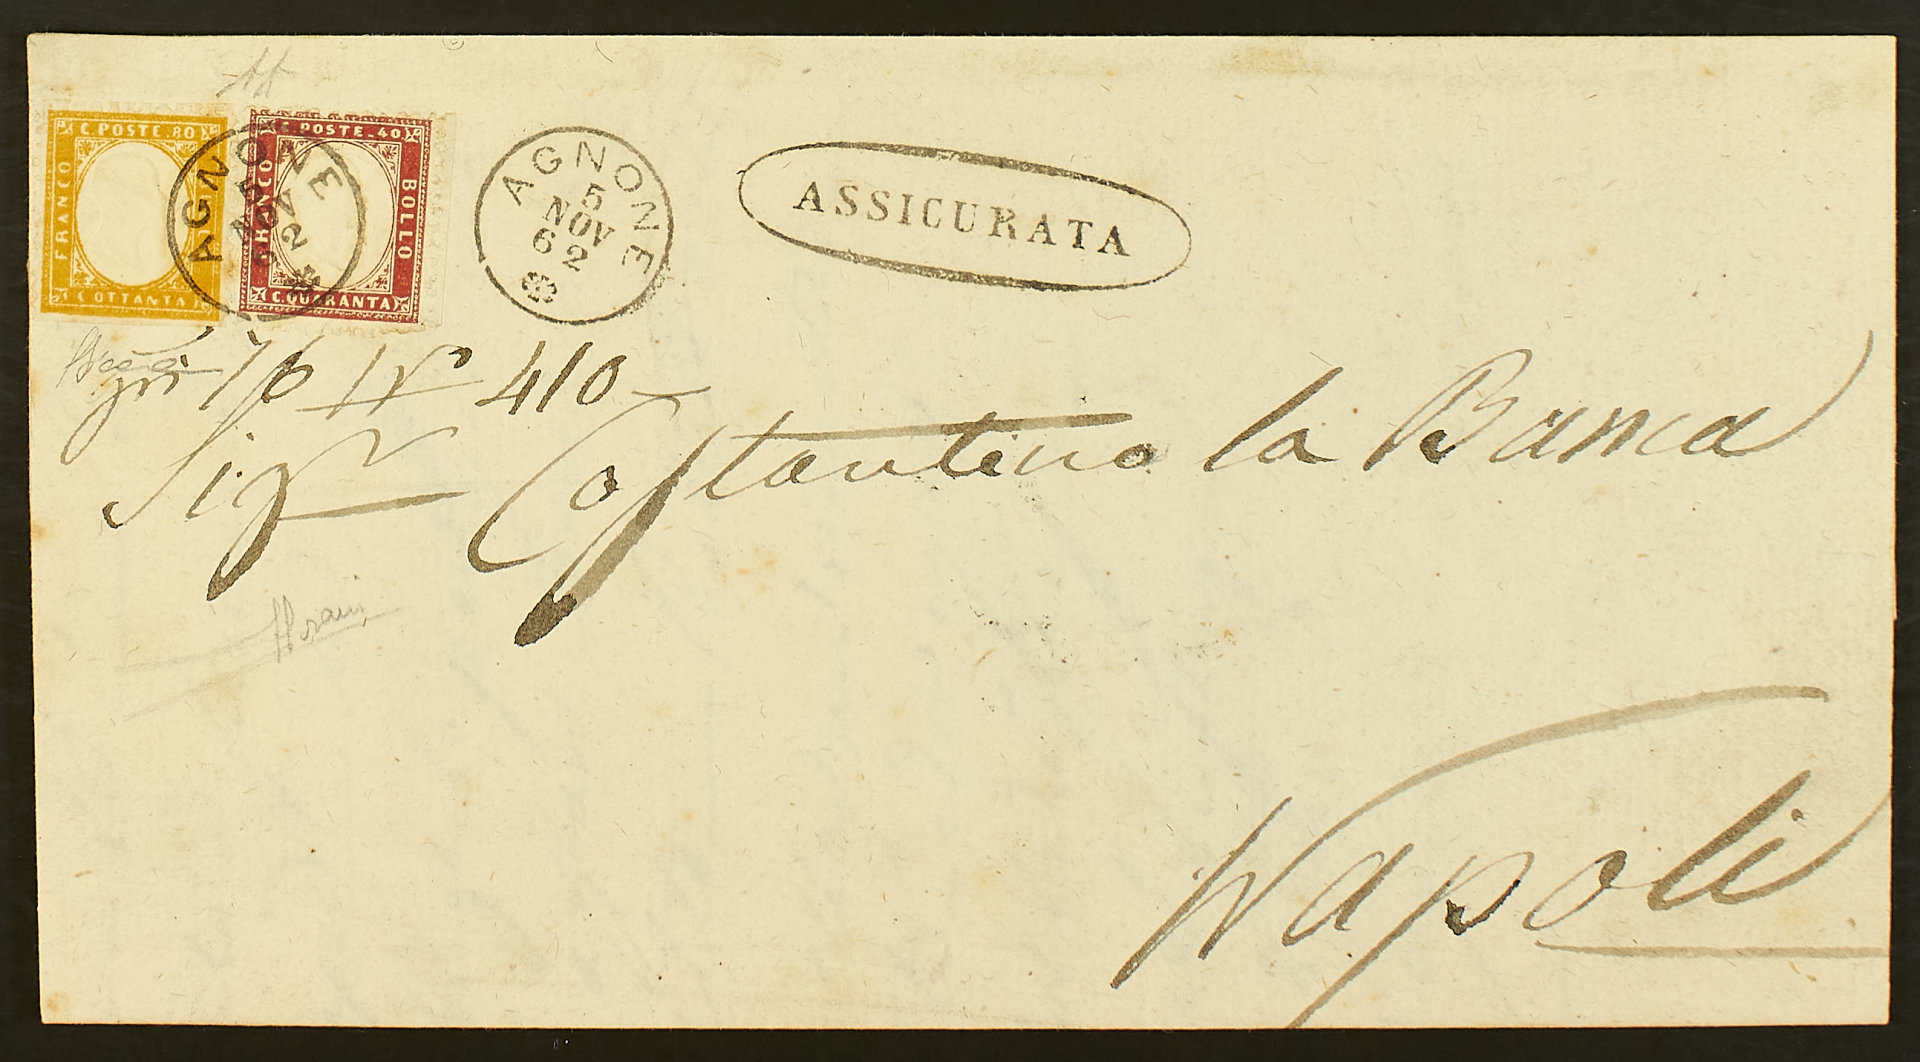 C. POSTE. 80
FRANCO
C. OTTANTA
C. POSTE. 40
FRANCO
BOLLO
C. QUARANTA
AGNONE
5
NOV
62
AGNONE
5
NOV
62
ASSICURATA
gri 76 Nº 410
Sigr Costantino la Banca
Napoli